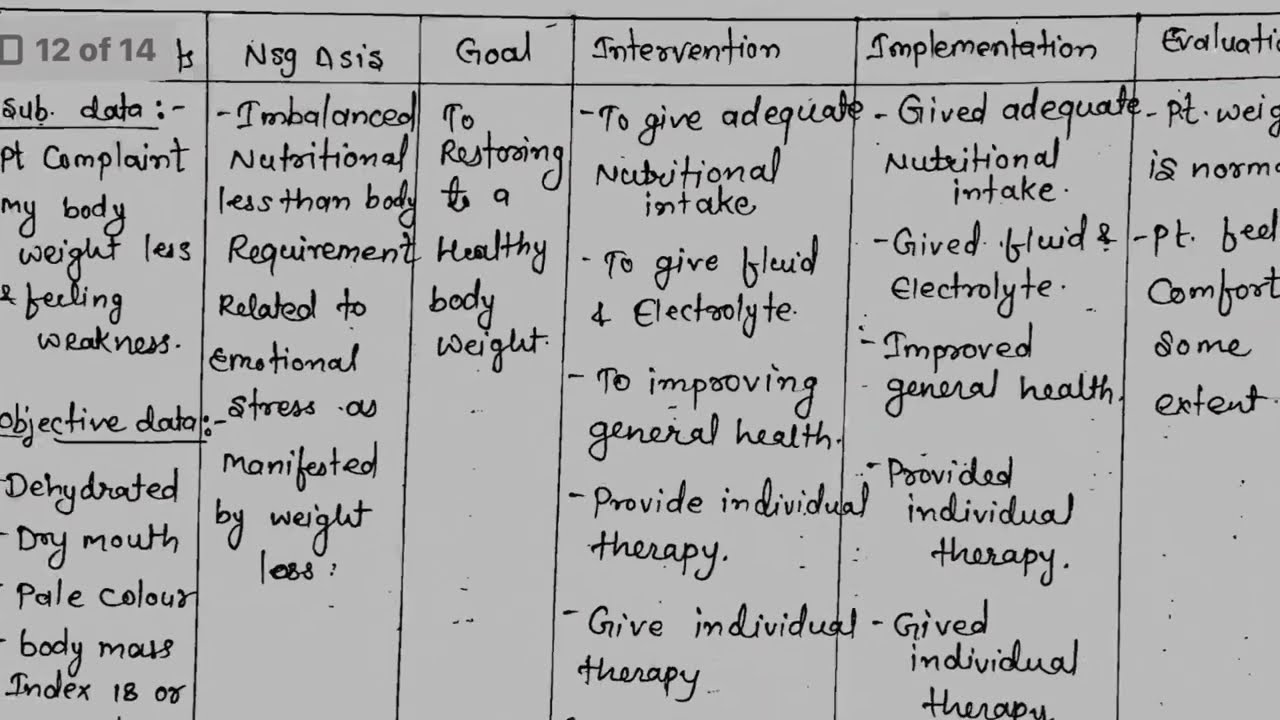 12 of 14
ts
Nsg Δsis
Goal
Intervention
Implementation
Evaluatio
Sub. data:-
Pt Complaint
my body
weight less
& feeling
weakness.
Objective data:-
Dehydrated
- Dry mouth
- Pale colour
- body mass
Index 18 or
- Imbalanced
Nutritional
less than body
Requirement
Related to
Emotional
stress as
manifested
by weight
less:
To
Restoring
to a
Healthy
body
weight.
- To give adequate
Nutritional
intake
- To give fluid
& Electrolyte.
- To improving
general health.
- Provide individual
therapy.
- Give individual
therapy
- Gived adequate
Nutritional
intake.
- Gived fluid &
Electrolyte.
- Improved
general health.
- Provided
individual
therapy.
- Gived
individual
therapy.
- Pt. weig
is norma
- Pt. feel
Comfort
some
extent.